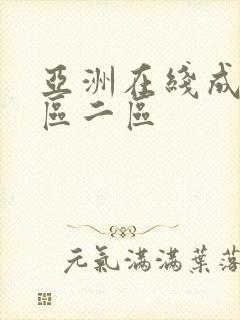 亞洲在綫成
區二區
元氣滿滿葉落